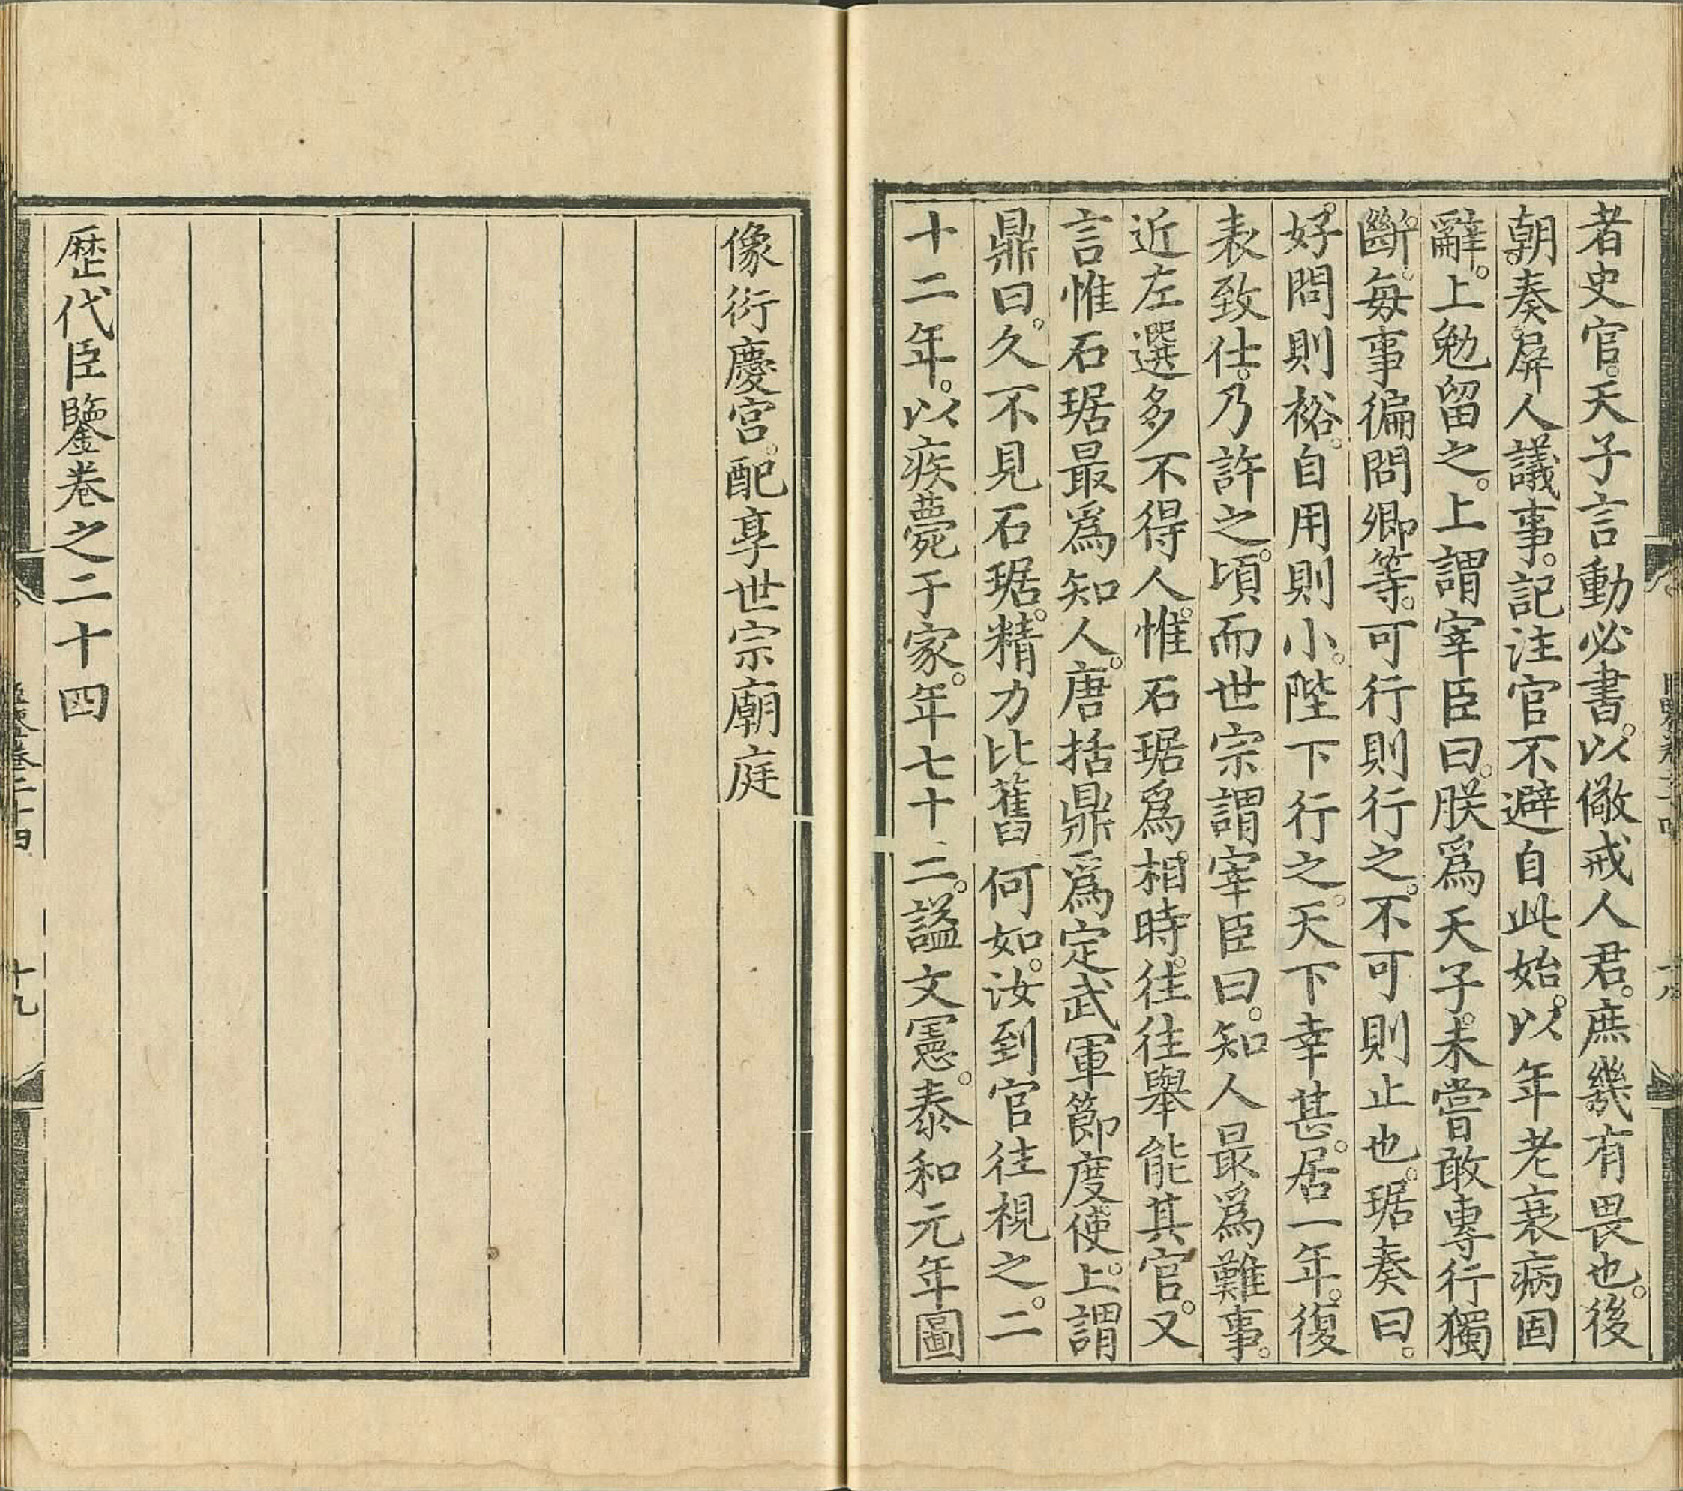 者史官。天子言動必書。以儆戒人君。庶幾有畏也。後
朝奏屏人議事。記注官不避自此始。以年老衰病固
辭。上勉留之。上謂宰臣曰。朕爲天子。未嘗敢專行獨
斷。每事徧問卿等。可行則行之。不可則止也。琚奏曰。
好問則裕。自用則小。陛下行之。天下幸甚。居一年。復
表致仕。乃許之。頃而世宗謂宰臣曰。知人最爲難事。
近左選多不得人。惟石琚爲相時。往往舉能其官。又
言惟石琚最爲知人。唐括鼎爲定武軍節度使。上謂
鼎曰。久不見石琚。精力比舊何如。汝到官往視之。二
十二年。以疾薨于家。年七十二。謚文憲。泰和元年圖
像衍慶宮。配享世宗廟庭
歷代臣鑒卷之二十四
十九